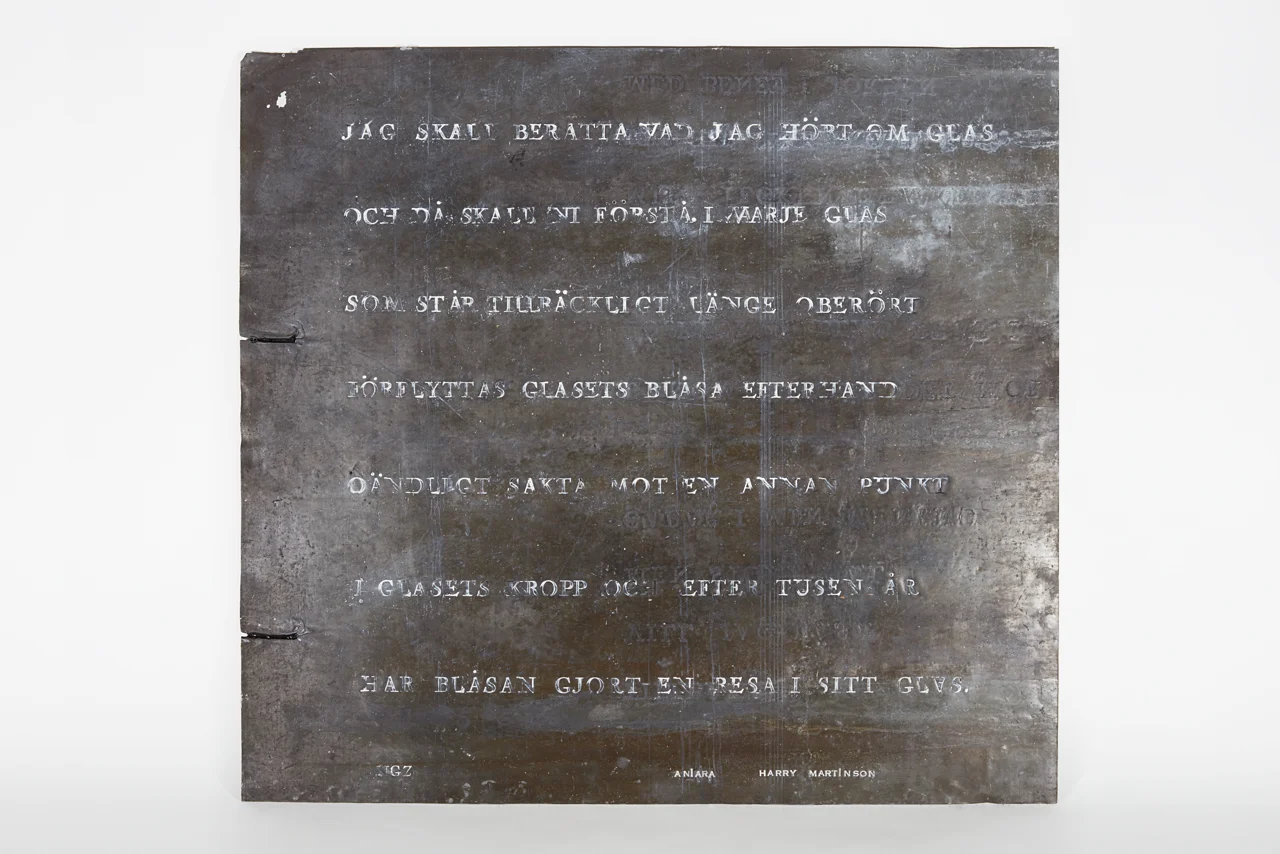 JAG SKALL BERÄTTA VAD JAG HÖRT OM GLAS
OCH DÅ SKALL NI FÖRSTÅ. I VARJE GLAS
SOM STÅR TILLRÄCKLIGT LÄNGE OBERÖRT
FÖRFLYTTAS GLASETS BLÅSA EFTERHAND
OÄNDLIGT SAKTA MOT EN ANNAN PUNKT
I GLASETS KROPP OCH EFTER TUSEN ÅR
HAR BLÅSAN GJORT EN RESA I SITT GLAS.
ANIARA HARRY MARTINSON